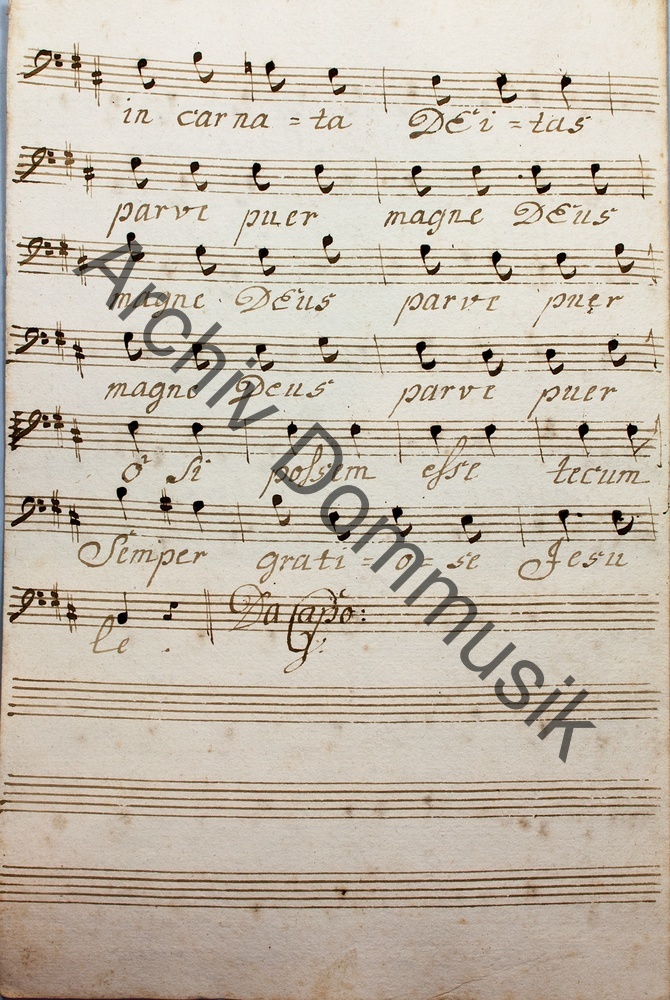 in carna=ta DEi=tas
parve puer magne DEus
magne DEus parve puer
magne Deus parve puer
ô si possem esse tecum
Semper grati=o=se Jesu
le. Da Capo:
Archiv Dommusik